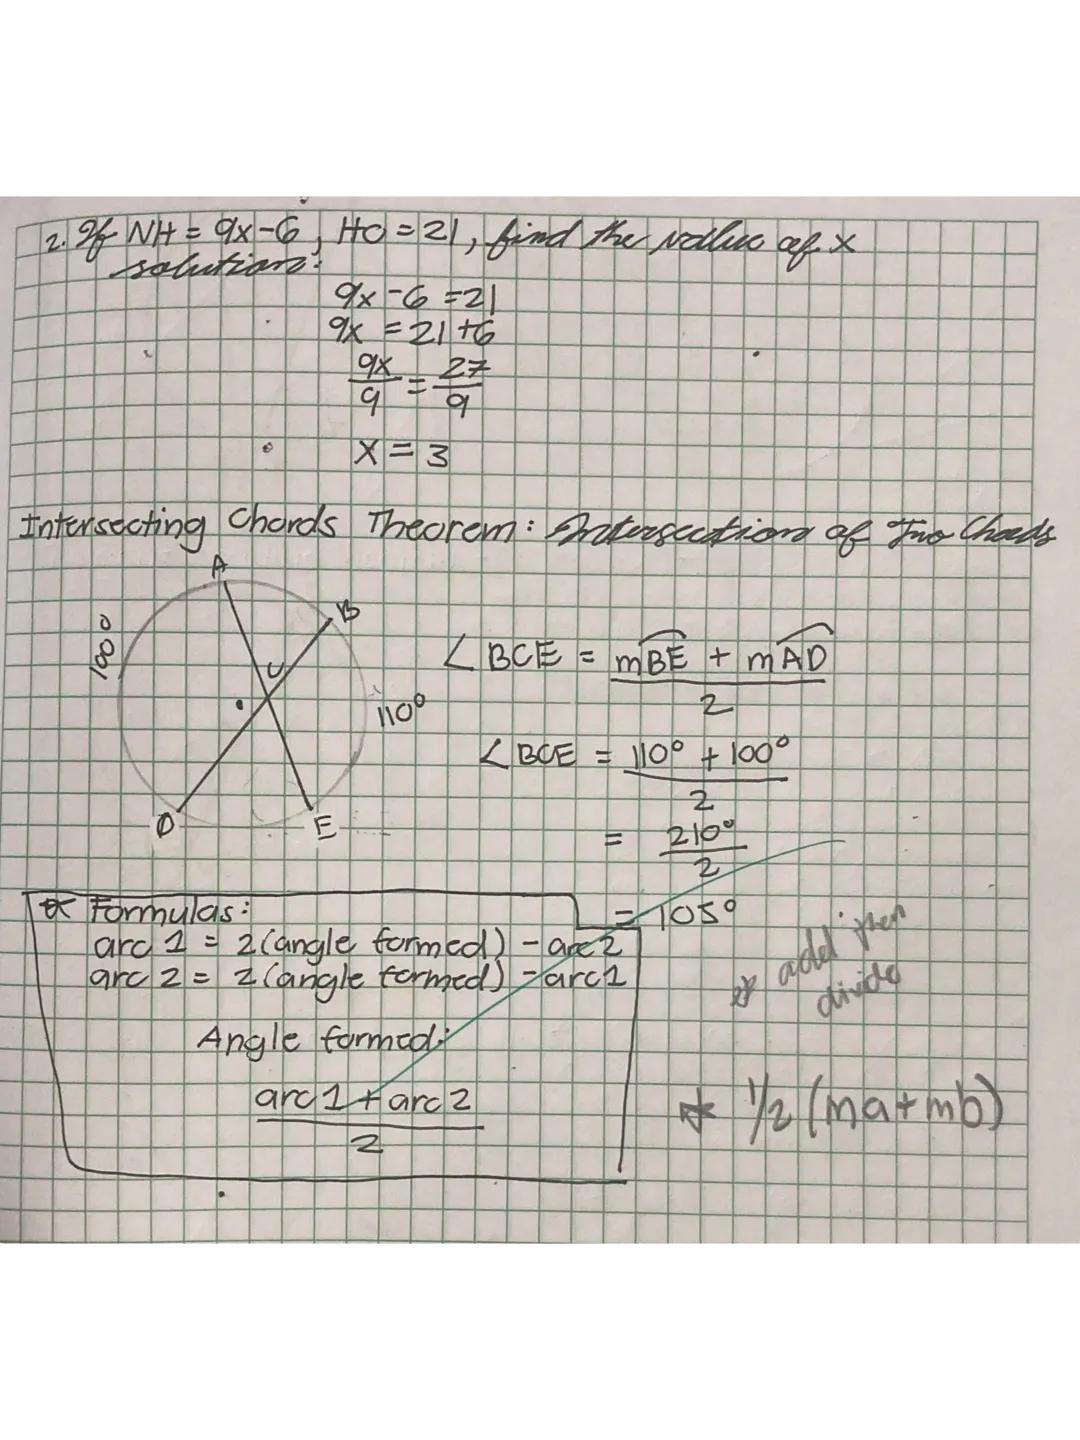 2. If NH = 9x-6, HO = 21, find the value of x
solution:
9x - 6 = 21
9x = 21 + 6
9x/9 = 27/9
x = 3
Intersecting Chords Theorem: Intersection of Two Chords
A
B
100°
C
110°
D
E
∠BCE = mBE + mAD
2
∠BCE = 110° + 100°
2
= 210°
2
= 105°
* Formulas:
arc 1 = 2(angle formed) - arc 2
arc 2 = 2(angle formed) - arc 1
Angle formed:
arc 1 + arc 2
2
* add then
divide
* 1/2 (ma + mb)